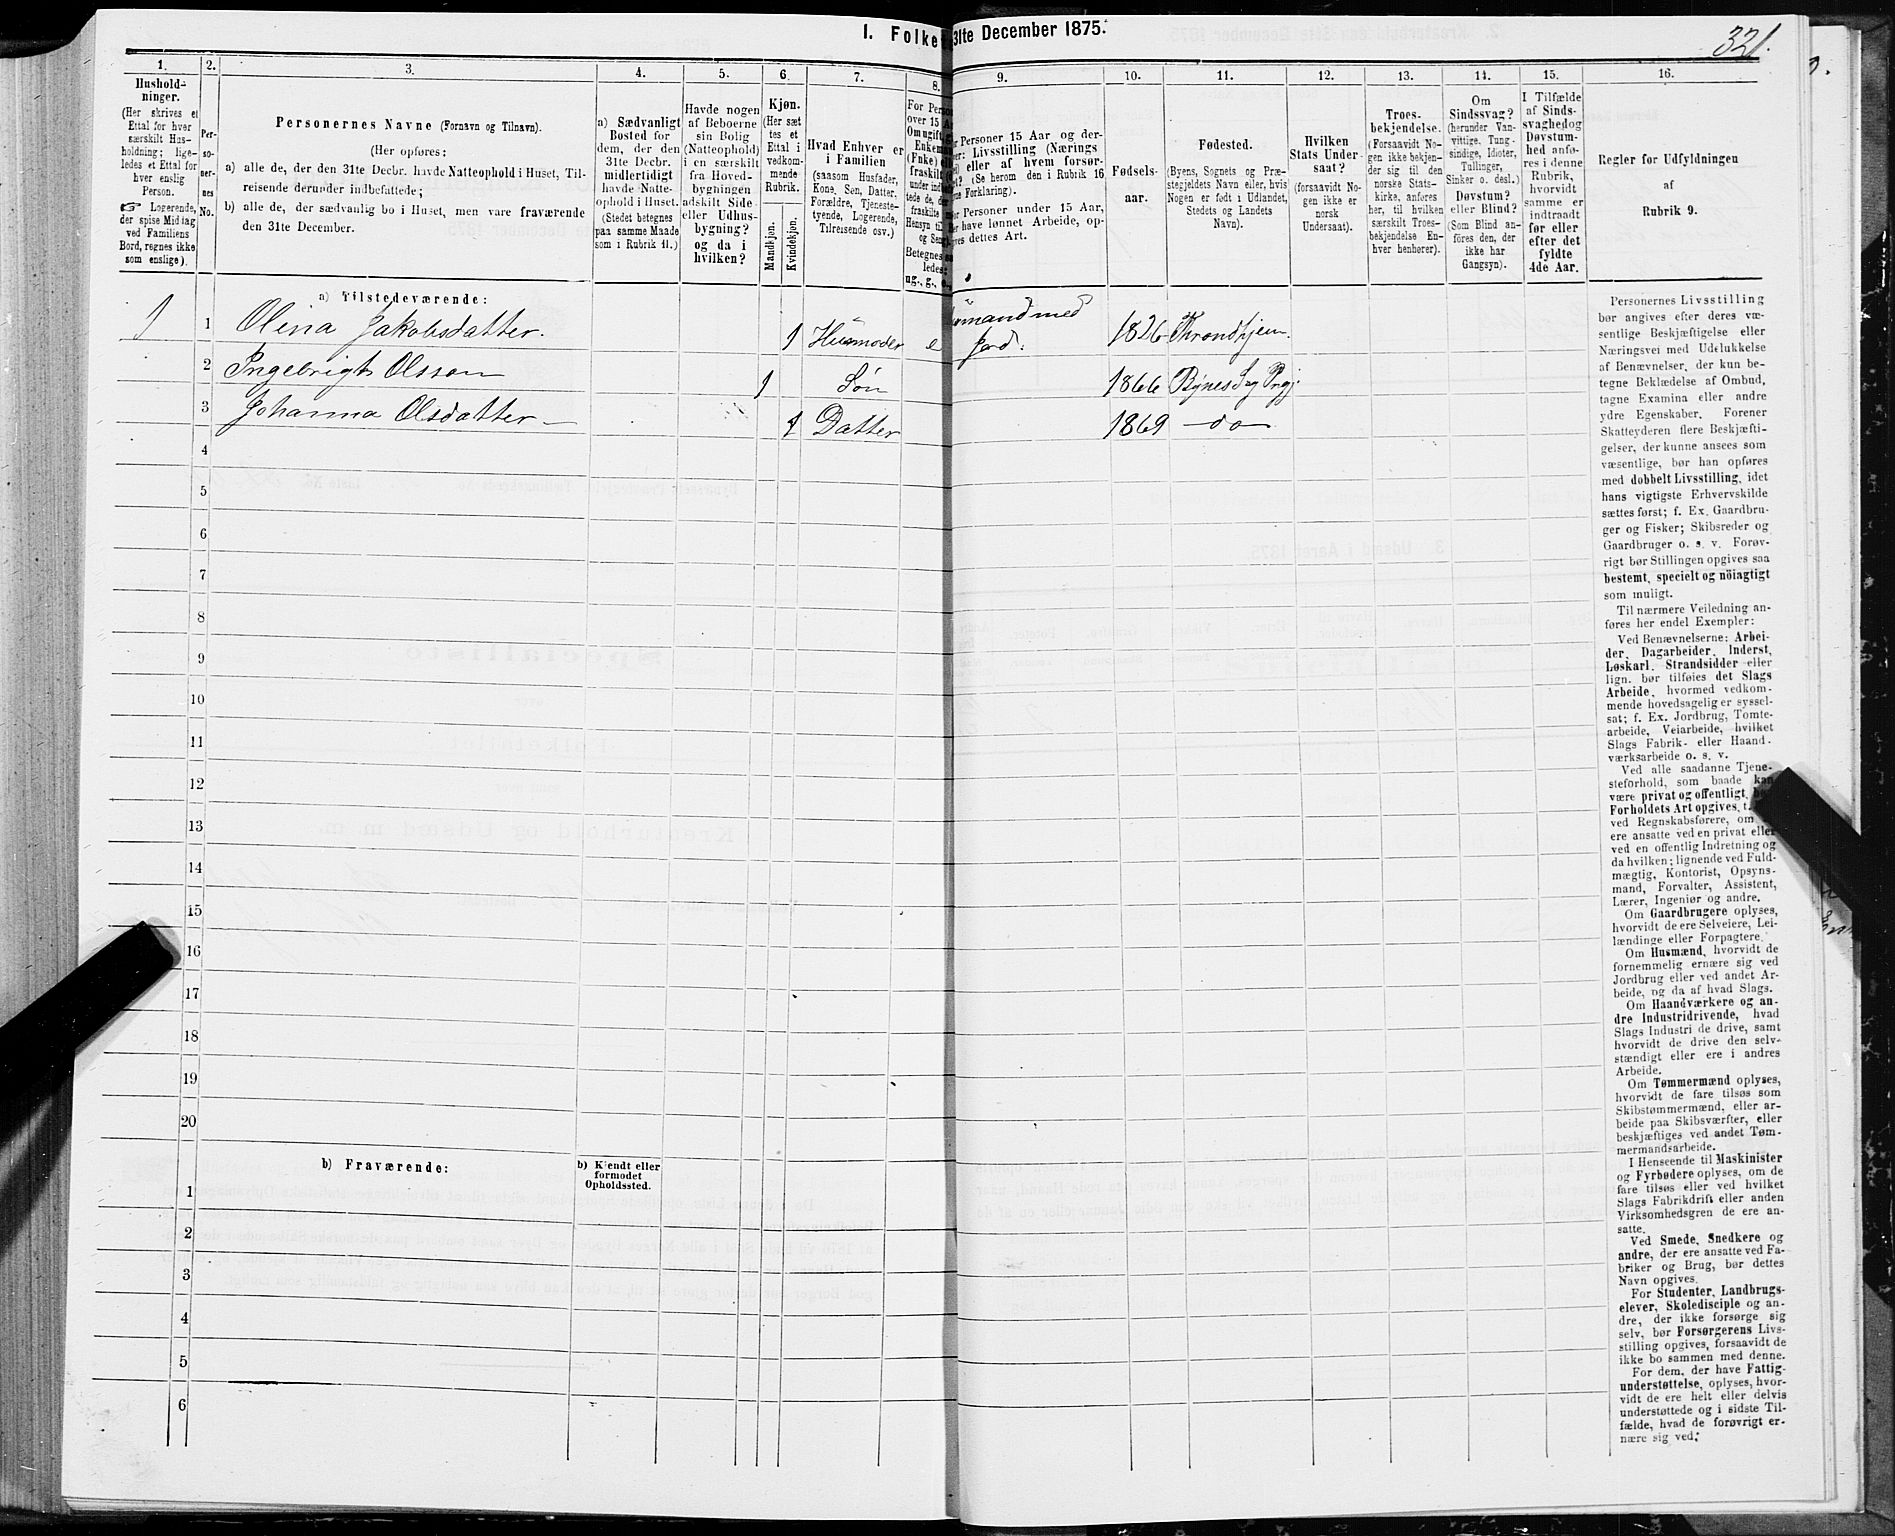 321.
I. Folke 31te December 1875.
1.
Husholdninger.
(Her skrives et
Ettal for hver
særskilt Husholdning;
ligeledes et Ettal for
hver enslig
Person.
☞ Logerende,
der spise Middag
ved Familiens
Bord, regnes ikke
som enslige).
2.
Personernes
No.
3.
Personernes Navne (Fornavn og Tilnavn).
(Her opføres:
a) alle de, der den 31te Decbr. havde Natteophold i Huset, Tilreisende derunder indbefattede;
b) alle de, der sædvanlig bo i Huset, men vare fraværende
den 31te December.
4.
a) Sædvanligt
Bosted for
dem, der den
31te Decbr.
midlertidigt
havde Natteophold i Huset.
(Stedet betegnes
paa samme Maade
som i Rubrik 11.)
5.
Havde nogen
af Beboerne
sin Bolig
(Natteophold)
i en særskilt
fra Hovedbygningen
adskilt Side- eller Udhusbygning?
og da i
hvilken?
6.
Kjøn.
(Her sættes et
Ettal i
vedkommende
Rubrik.
Mandkjøn.
Kvindekjøn.
7.
Hvad Enhver er
i Familien
(saasom Husfader,
Kone, Søn, Datter,
Forældre, Tjenestetyende, Logerende,
Tilreisende osv.)
8.
9.
Personer 15 Aar og der-
Livsstilling (Nærings
eller af hvem forsør-
(Se herom den i Rubrik 16
Forklaring).
Personer under 15 Aar,
have lønnet Arbeide, op-
dettes Art.
10.
Fødselsaar.
11.
Fødested.
(Byens, Sognets og Præstegjeldets Navn eller, hvis
Nogen er født i Udlandet,
Stedets og Landets
Navn).
12.
Hvilken
Stats Undersaat?
(forsaavidt Nogen ikke er
norsk
Undersaat).
13.
Troesbekjendelse.
(Forsaavidt Nogen ikke bekjender sig til den
norske Statskirke, anføres
her, til hvilken
særskilt Troesbekjendelse Enhver henhører).
14.
Om
Sindssvag?
(herunder Vanvittige, Tungsindige, Idioter,
Tullinger,
Sinker o. desl.)
Døvstum?
eller Blind?
(Som Blind anføres den, der
ikke har
Gangsyn).
15.
I Tilfælde
af Sindssvaghed og
Døvstumhed anføres i denne
Rubrik,
hvorvidt
samme er
indtraadt
før eller
efter det
fyldte
4de Aar.
16.
Regler for Udfyldningen
af
Rubrik 9.
a) Tilstedeværende:
1 1 Olina Jakobsdatter. 1 Husmoder e mand med Jord. 1826 Throndhjem.
2 Ingebrigt Olsson 1 Søn 1866 Bynes S og Prgj.
3 Johanna Olsdatter 1 Datter 1869 do
4
5
6
7
8
9
10
11
12
13
14
15
16
17
18
19
20
b) Fraværende:
b) Kjendt eller
formodet
Opholdssted.
1
2
3
4
5
6
Personernes Livsstilling
bør angives efter deres væsentlige Beskjæftigelse eller
Næringsvei med Udelukkelse
af Benævnelser, der kun betegne Beklædelse af Ombud,
tagne Examina eller andre
ydre Egenskaber. Forener
Skatteyderen flere Beskjæftigelser, der kunne ansees som
væsentlige, bør han opføres
med dobbelt Livsstilling, idet
hans vigtigste Erhvervskilde
sættes først; f. Ex. Gaardbruger og Fisker; Skibsreder og
Gaardbruger o. s. v. Forøvrigt bør Stillingen opgives saa
bestemt, specielt og nöiagtigt
som muligt.
Til nærmere Veiledning anføres her endel Exempler:
Ved Benævnelserne: Arbeider, Dagarbeider, Inderst,
Løskarl, Strandsidder eller
lign. bør tilføies det Slags
Arbeide, hvormed vedkommende hovedsagelig er sysselsat; f. Ex. Jordbrug, Tomtearbeide, Veiarbeide, hvilket
Slags Fabrik- eller Haandværksarbeide o. s. v.
Ved alle saadanne Tjenesteforhold, som baade kan
være privat og offentligt,
Forholdets Art opgives,
ved Regnskabsførere, om
ere ansatte ved en privat eller
ved en offentlig Indretning og
da hvilken; lignende ved Fuldmægtig, Kontorist, Opsynsmand, Forvalter, Assistent,
Lærer, Ingeniør og andre.
Om Gaardbrugere oplyses,
hvorvidt de ere Selveiere, Leilændinge eller Forpagtere.
Om Husmænd, hvorvidt de
fornemmelig ernære sig ved
Jordbrug eller ved andet Arbeide, og da af hvad Slags.
Om Haandværkere og andre Industridrivende, hvad
Slags Industri de drive, samt
hvorvidt de drive den selvstændigt eller ere i andres
Arbeide.
Om Tømmermænd oplyses,
hvorvidt de fare tilsøs som
Skibstømmermænd, eller arbeide paa Skibsværfter, eller
beskjæftiges ved andet Tømmermandsarbeide.
I Henseende til Maskinister
og Fyrbødere oplyses, om de
fare tilsøs eller ved hvilket
Slags Fabrikdrift eller anden
Virksomhedsgren de ere ansatte.
Ved Smede, Snedkere og
andre, der ere ansatte ved Fabriker og Brug, bør dettes
Navn opgives.
For Studenter, Landbrugselever, Skoledisciple og andre, der ikke forsørge sig
selv, bør Forsørgerens Livsstilling opgives, forsaavidt de
ikke bo sammen med denne.
For dem, der have Fattigunderstøttelse, oplyses, hvorvidt de ere helt eller delvis
understøttede og i sidste Tilfælde, hvad de forøvrigt ernære sig ved.